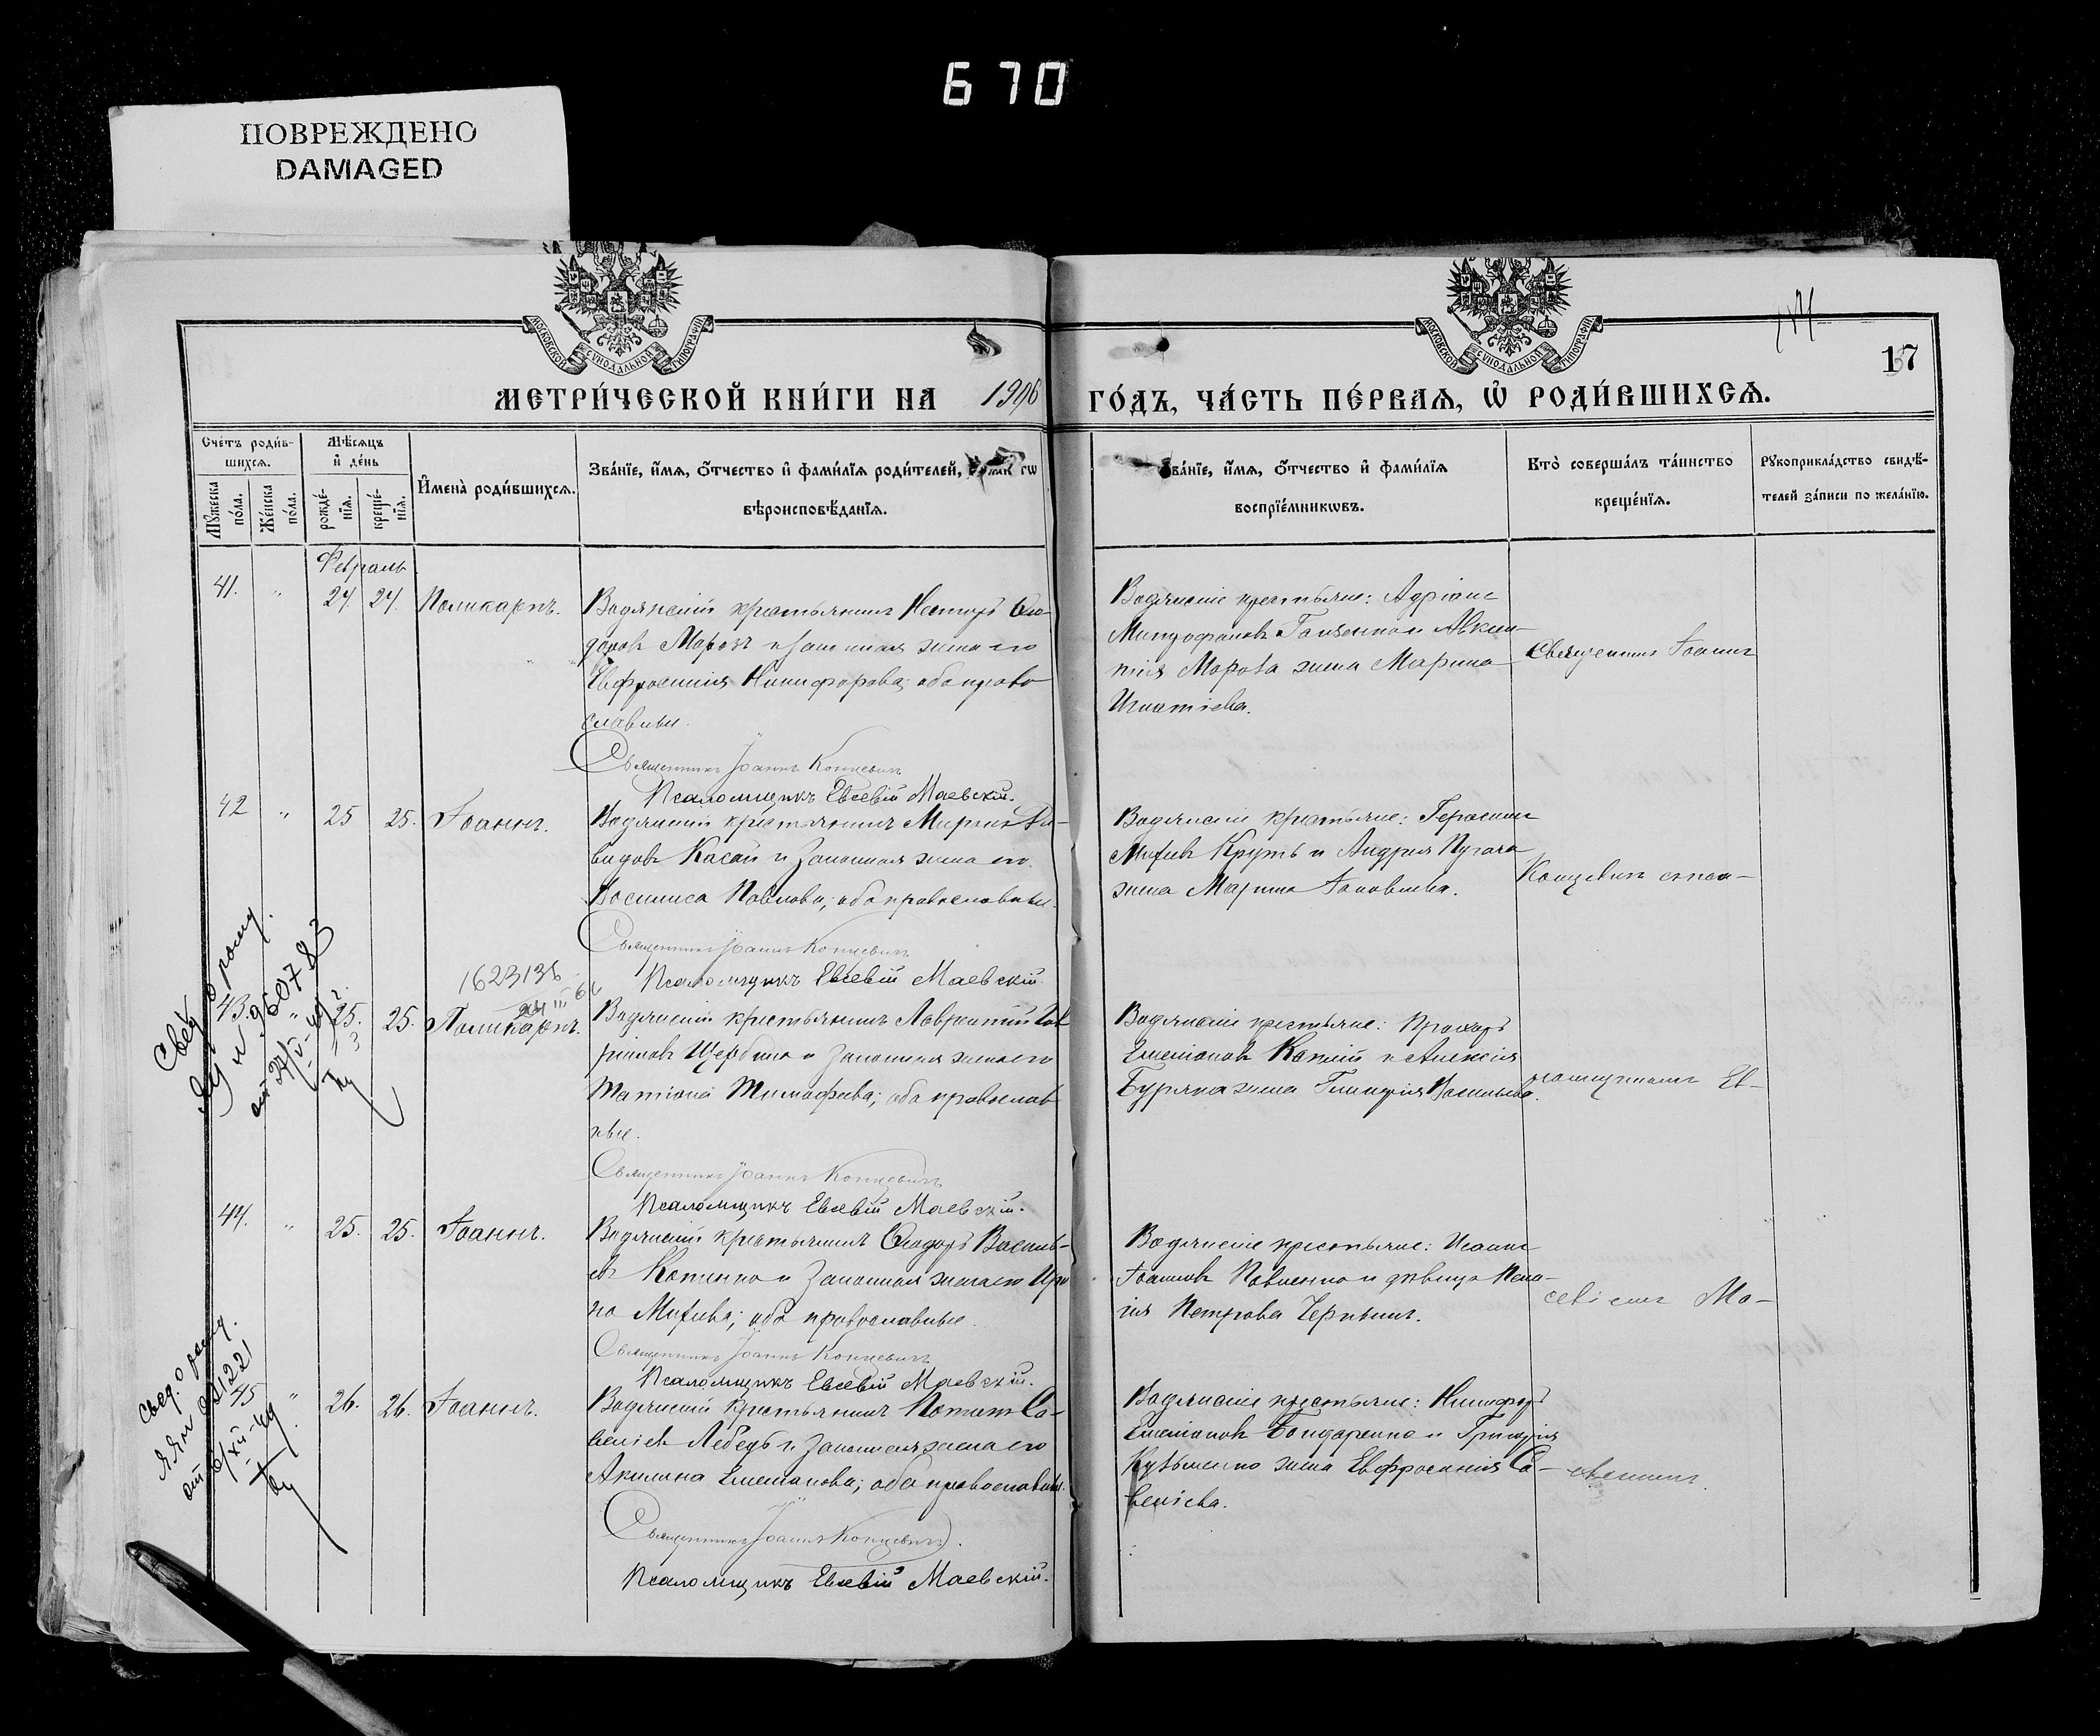 670
ПОВРЕЖДЕНО
DAMAGED
МОСКОВСКОЙ СѴНОДАЛЬНОЙ ТИПОГРАФІИ
МОСКОВСКОЙ СѴНОДАЛЬНОЙ ТИПОГРАФІИ
17
МЕТРИ́ЧЕСКОЙ КНИ́ГИ НА 1906 ГО́ДЪ, ЧА́СТЬ ПЕ́РВАѦ, Ѽ РОДИ́ВШИХСѦ.
Сче́тъ роди́в-
шихсѧ.
Мꙋ́жеска по́ла.
Же́нска по́ла.
Мѣ́сѧцъ
и҆ де́нь
рожде́-
нїѧ.
креще́-
нїѧ.
И҆мена̀ роди́вшихсѧ.
Зва́нїе, и҆́мѧ, ѻ҆́тчество и҆ фами́лїѧ роди́телей,
вѣроисповѣ́данїѧ.
Зва́нїе, и҆́мѧ, ѻ҆́тчество и҆ фами́лїѧ
воспрїе́мникѡвъ.
Кто̀ соверша́лъ та́инство
креще́нїѧ.
Рꙋкоприкла́дство свидѣ́-
телей за́писи по жела́нїю.
Февраль
41. " 24. 24. Поликарпъ.
Водянскій крестьянинъ Несторъ Ѳео-
доровъ Морозъ и законная жена его
Евфросинія Никифорова; оба право
славные.
Священникъ Іоаннъ Концевичъ
Псаломщикъ Евсевій Маевскій.
Водянскіе крестьяне: Адріанъ
Митрофановъ и
Мороза жена Марина
Игнатіева.
Священникъ Іоаннъ
42 " 25 25. Іоаннъ.
Водянскій крестьянинъ Миронъ Да-
видовъ Касай и законная жена его
Василиса Павлова; оба православные.
Священникъ Іоаннъ Концевичъ
Псаломщикъ Евсевій Маевскій.
Водянскіе крестьяне: Герасимъ
Михеевъ Круть и Андрея Пугача
жена Марина Іаковлева.
Концевичъ съ пса-
1623136
Свед о рожд.
ЯУ н. 960783
43. " 25. 25. Поликарпъ.
Водянскій крестьянинъ Лаврентій Гав
ріиловъ Щербина и законная жена его
Матрона Тимофеева; оба православ
ные.
Священникъ Іоаннъ Концевичъ
Псаломщикъ Евсевій Маевскій.
Водянскіе крестьяне: Прохоръ
Емеліановъ и Алексія
Буряка жена Гликерія Васильева.
ломщикомъ Ев-
44. " 25. 25. Іоаннъ.
Водянскій крестьянинъ Ѳеодоръ Василь-
евъ Котенко и законная жена его Ири
на Михеева; оба православные.
Священникъ Іоаннъ Концевичъ
Псаломщикъ Евсевій Маевскій.
Водянскіе крестьяне:
Іоанновъ Павленко и девица Пела-
гія Петрова
севіемъ Ма-
Свед. о рожд.
45 " 26. 26. Іоаннъ.
Водянскій крестьянинъ Потапъ Са-
веліевъ Лебедь и законная жена его
Акилина Емеліанова; оба православные.
Священникъ Іоаннъ Концевичъ.
Псаломщикъ Евсевій Маевскій.
Водянскіе крестьяне: Никифоръ
Емеліановъ Бондаренко и Григорія
Кузьменко жена Евфросинія Са-
веліева.
евскимъ.